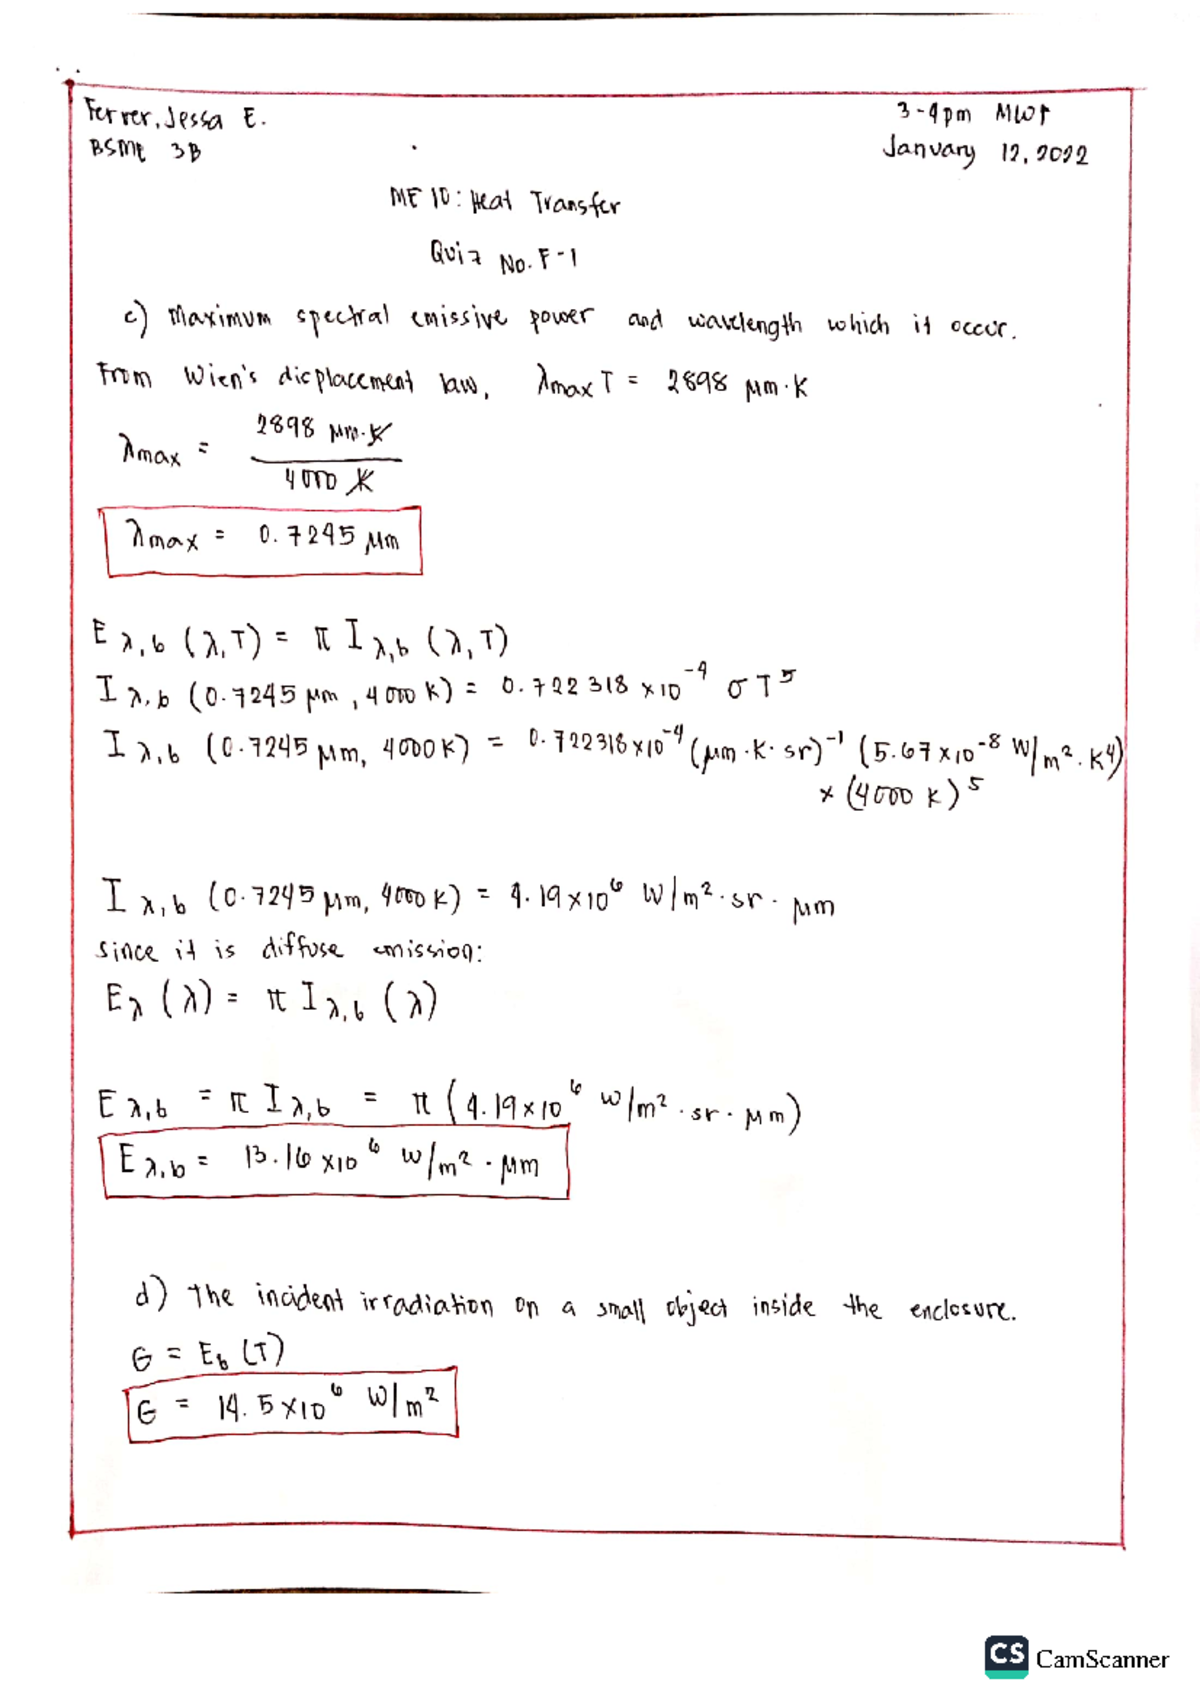 Ferrer, Jessa E.
3-4pm MWF
BSME 3B
January 12, 2022
ME 10: Heat Transfer
Quiz No. F-1
c) Maximum spectral emissive power and wavelength which it occur.
From Wien's displacement law, λmax T = 2898 μm·K
λmax = 2898 μm·K / 4000 K
λmax = 0.7245 μm
E λ,b (λ,T) = π I λ,b (λ,T)
I λ,b (0.7245 μm, 4000 K) = 0.722318 x10⁻⁴ σT⁵
I λ,b (0.7245 μm, 4000K) = 0.722318x10⁻⁴ (μm·K·sr)⁻¹ (5.67x10⁻⁸ W/m²·K⁴)
x (4000 K)⁵
I λ,b (0.7245 μm, 4000 K) = 4.19x10⁶ W/m²·sr·μm
since it is diffuse emission:
Eλ (λ) = π I λ,b (λ)
E λ,b = π I λ,b = π (4.19x10⁶ W/m²·sr·μm)
E λ,b = 13.16 x10⁶ W/m²·μm
d) The incident irradiation on a small object inside the enclosure.
G = Eb (T)
G = 14.5x10⁶ W/m²
CS CamScanner